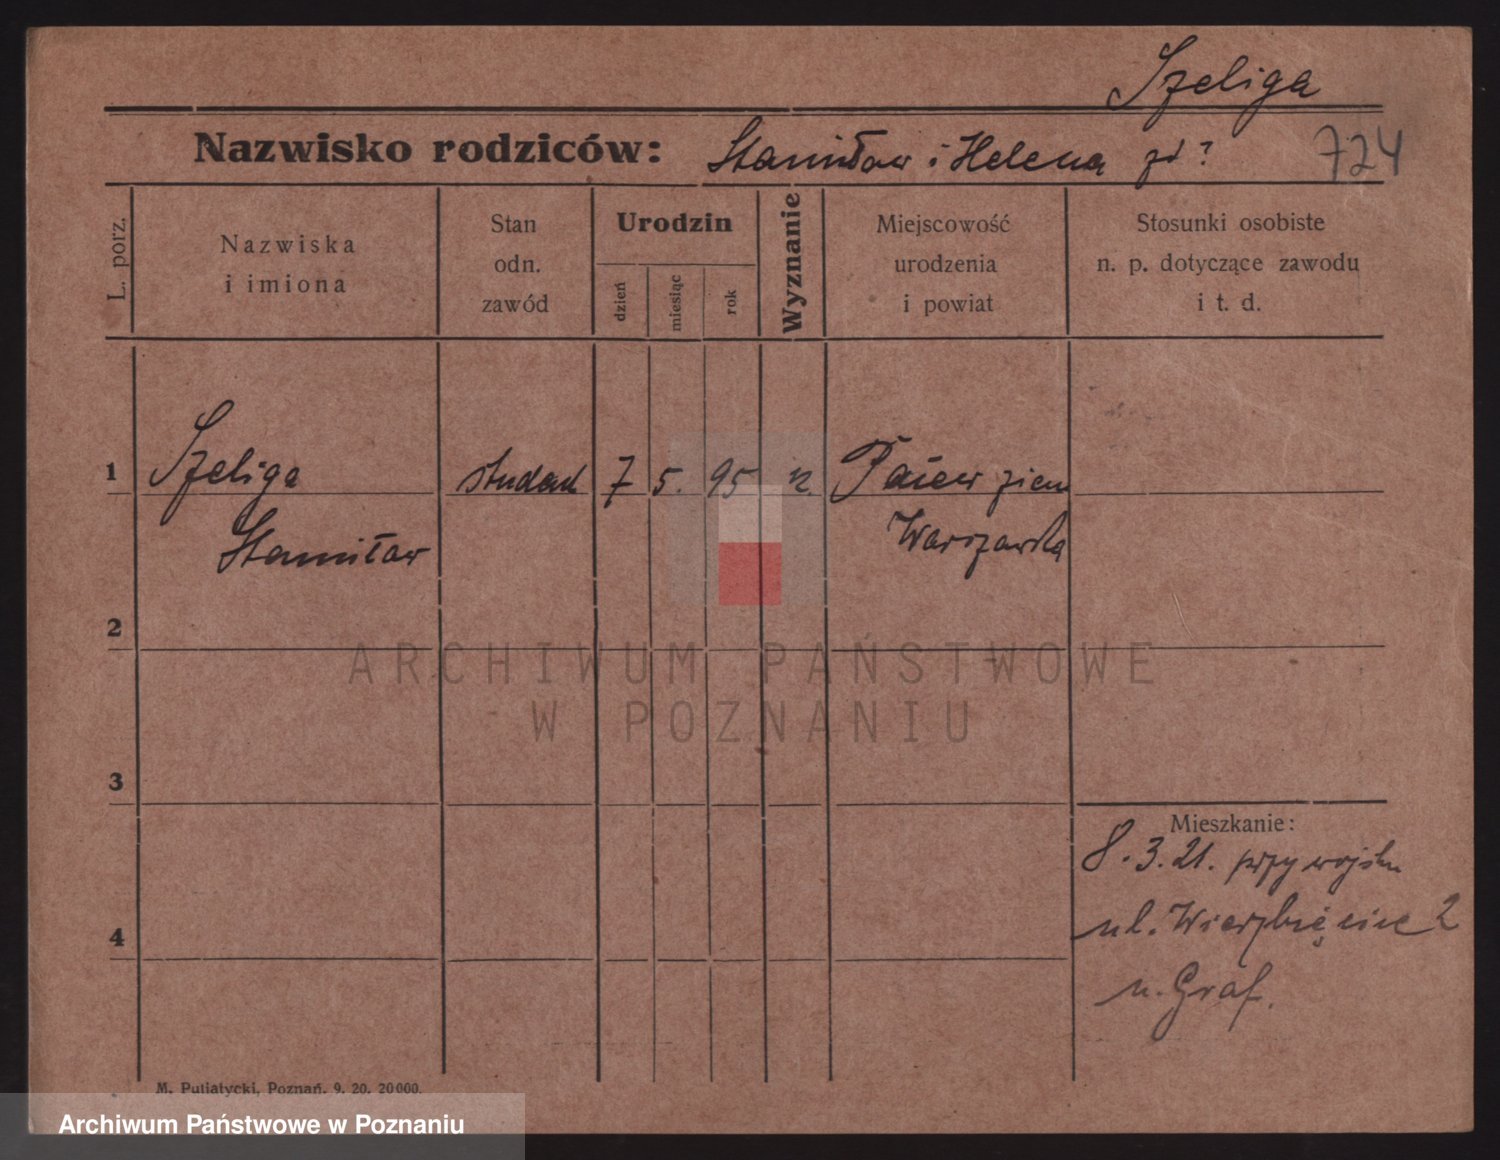 Szeliga
Nazwisko rodziców: Stanisław i Helena zd ? 724
L. porz.
Nazwiska
i imiona
Stan
odn.
zawód
Urodzin
dzień
miesiąc
rok
Wyznanie
Miejscowość
urodzenia
i powiat
Stosunki osobiste
n. p. dotyczące zawodu
i t. d.
1 Szeliga student 7 5. 95 ziem
Stanisław Warszawska
2
ARCHIWUM PAŃSTWOWE
W POZNANIU
3
Mieszkanie:
8.3.21. przy wojsku
4 ul. Wierzbięcice 2
u. Graf.
M. Putiatycki, Poznań. 9. 20. 20000.
Archiwum Państwowe w Poznaniu